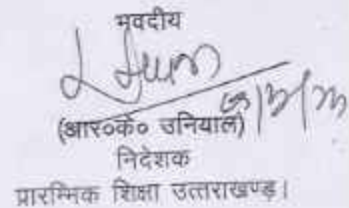 भवदीय
(आर०के० उनियाल)
निदेशक
प्रारम्भिक शिक्षा उत्तराखण्ड।